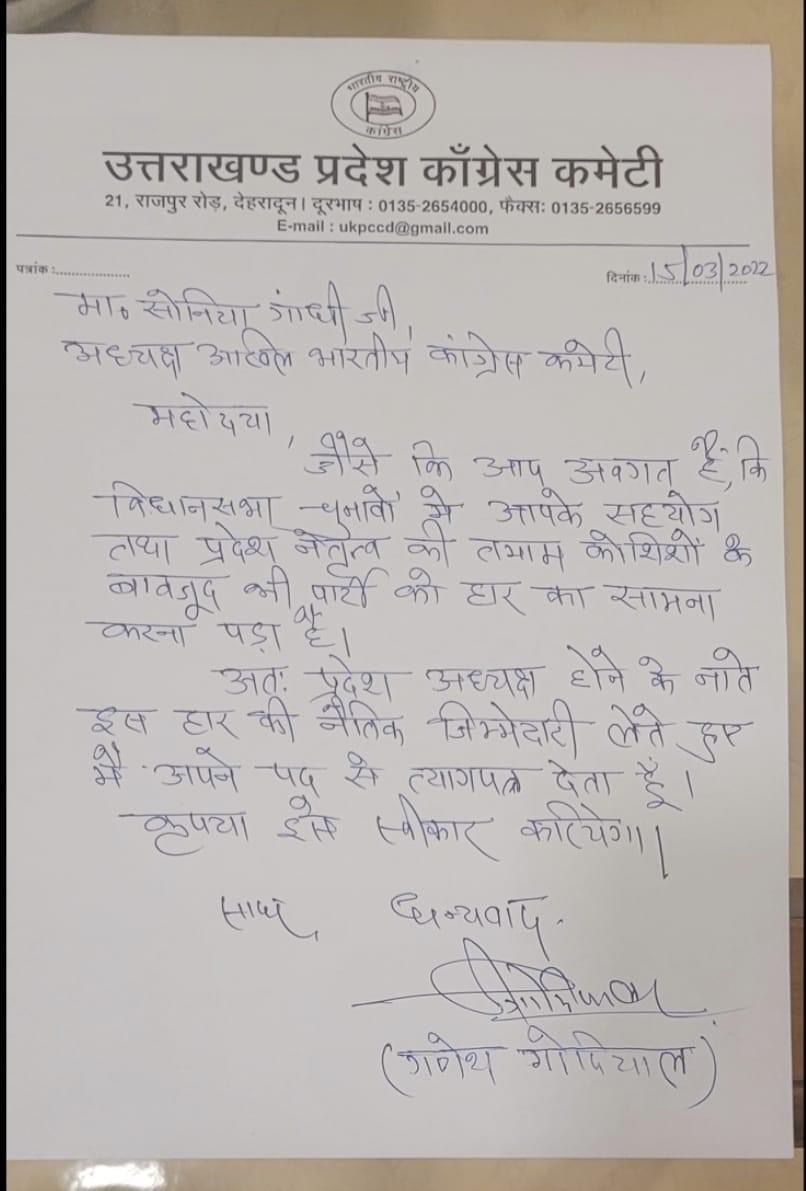 भारतीय राष्ट्रीय
काँग्रेस
उत्तराखण्ड प्रदेश काँग्रेस कमेटी
21, राजपुर रोड़, देहरादून। दूरभाष : 0135-2654000, फैक्सः 0135-2656599
E-mail : ukpccd@gmail.com
पत्रांक :..................
दिनांक :15/03/2022
मा० सोनिया गांधी जी,
अध्यक्ष अखिल भारतीय कांग्रेस कमेटी,
महोदया,
जैसे कि आप अवगत हैं, कि
विधानसभा चुनावों में आपके सहयोग
तथा प्रदेश नेतृत्व की तमाम कोशिशों के
बावजूद भी पार्टी को हार का सामना
करना पड़ा है।
अतः प्रदेश अध्यक्ष होने के नाते
इस हार की नैतिक जिम्मेदारी लेते हुए
मैं अपने पद से त्यागपत्र देता हूँ।
कृपया इसे स्वीकार करियेगा।
धन्यवाद
(गणेश गोदियाल)